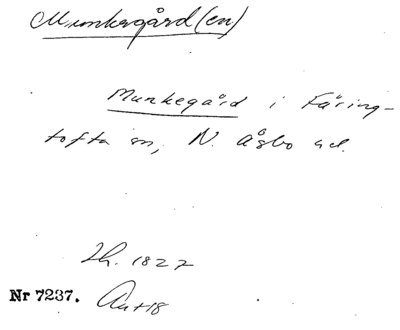 Munkagård (en)
Munkegård i Färing-
tofta sn, N. Åsbo hd.
Lh. 1827
Nr 7237.